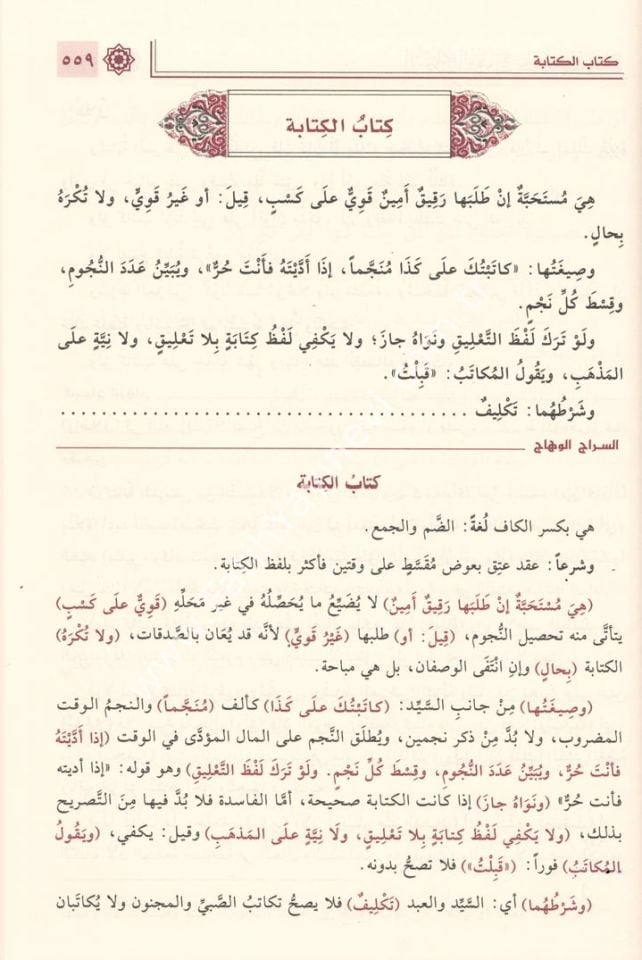 كتاب الكتابة ٥٥٩
كِتابُ الكِتابة
هِيَ مُستَحَبَّةٌ إنْ طَلَبَها رَقِيقٌ أمِينٌ قَوِيٌّ على كَسْبٍ، قِيلَ: أو غَيرُ قَوِيٍّ، ولا تُكْرَهُ
بِحالٍ.
وصِيغَتُها: «كاتَبْتُكَ على كَذَا مُنَجَّماً، إذَا أدَّيْتَهُ فأنْتَ حُرٌّ»، ويُبَيِّنُ عَدَدَ النُّجُومِ،
وقِسْطَ كُلِّ نَجْمٍ.
ولَوْ تَرَكَ لَفْظَ التَّعْلِيقِ ونَوَاهُ جازَ؛ ولا يَكْفِي لَفْظُ كِتابَةٍ بِلا تَعْلِيقٍ، ولا نِيَّةٍ على
المَذْهَبِ، ويَقُولُ المُكاتَبُ: «قَبِلْتُ».
وشَرْطُهُما: تَكْلِيفٌ ........................................
السراج الوهاج
كتابُ الكِتابة
هي بكسر الكاف لُغةً: الضَّم والجمع.
وشرعاً: عقد عتِق بعوض مُقَسَّطٍ على وقتين فأكثر بلفظ الكِتابة.
(هِيَ مُسْتَحَبَّةٌ إنْ طَلَبَها رَقِيقٌ أمِينٌ) لا يُضَيِّعُ ما يُحَصِّلُهُ في غير مَحَلِّهِ (قَوِيٌّ على كَسْبٍ)
يتأتَّى منه تحصيل النُّجوم، (قِيلَ: أو) طلبها (غَيْرُ قَوِيٍّ) لأنَّه قد يُعَان بالصَّدقات، (ولا تُكْرَهُ)
الكتابة (بِحالٍ) وإنِ انْتَفَى الوصفان، بل هي مباحة.
(وصِيغَتُها) مِنْ جانبِ السَّيِّد: (كاتَبْتُكَ على كَذَا) كألف (مُنَجَّماً) والنجمُ الوقت
المضروب، ولا بُدَّ مِنْ ذكر نجمين، ويُطلَق النَّجم على المال المؤدَّى في الوقت (إذا أدَّيْتَهُ
فأنْتَ حُرٌّ، ويُبَيِّنُ عَدَدَ النُّجُومِ، وقِسْطَ كُلِّ نَجْمٍ. ولَوْ تَرَكَ لَفْظَ التَّعْلِيقِ) وهو قوله: «إذا أديته
فأنت حُرٌّ» (ونَوَاهُ جازَ) إذا كانت الكتابة صحيحة، أمَّا الفاسدة فلا بُدَّ فيها مِنَ التَّصريح
بذلك، (ولا يَكْفِي لَفْظُ كِتابةٍ بِلا تَعْلِيقٍ، ولَا نِيَّةٍ على المَذهَبِ) وقيل: يكفي، (ويَقُولُ
المُكاتَبُ) فوراً: («قَبِلْتُ») فلا تصحُّ بدونه.
(وشَرْطُهُما) أي: السَّيِّد والعبد (تَكْلِيفٌ) فلا يصحُّ تكاتبُ الصَّبيِّ والمجنون ولا يُكاتَبان